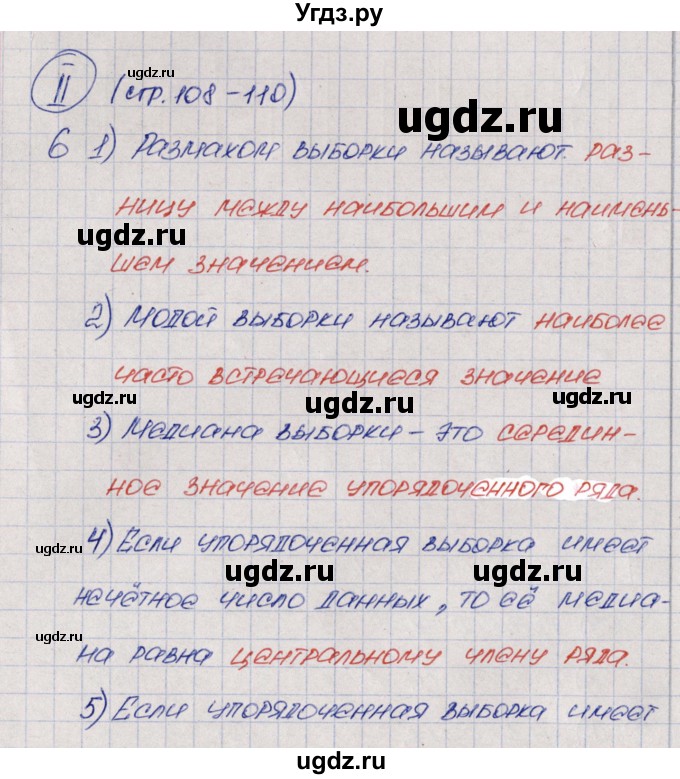 Угдз.ру
II (стр.108-110)
6 1) Размахом выборки называют раз-
ницу между наибольшим и наимень-
шем значением.
2) Модой выборки называют наиболее
часто встречающиеся значение
3) Медиана выборки – это середин-
ное значение упорядоченного ряда.
4) Если упорядоченная выборка имеет
нечётное число данных, то её медиа-
на равна центральному члену ряда.
5) Если упорядоченная выборка имеет
ugdz.ru
ugdz.ru
ugdz.ru
ugdz.ru
ugdz.ru
ugdz.ru
ugdz.ru
ugdz.ru
ugdz.ru
ugdz.ru
ugdz.ru
ugdz.ru